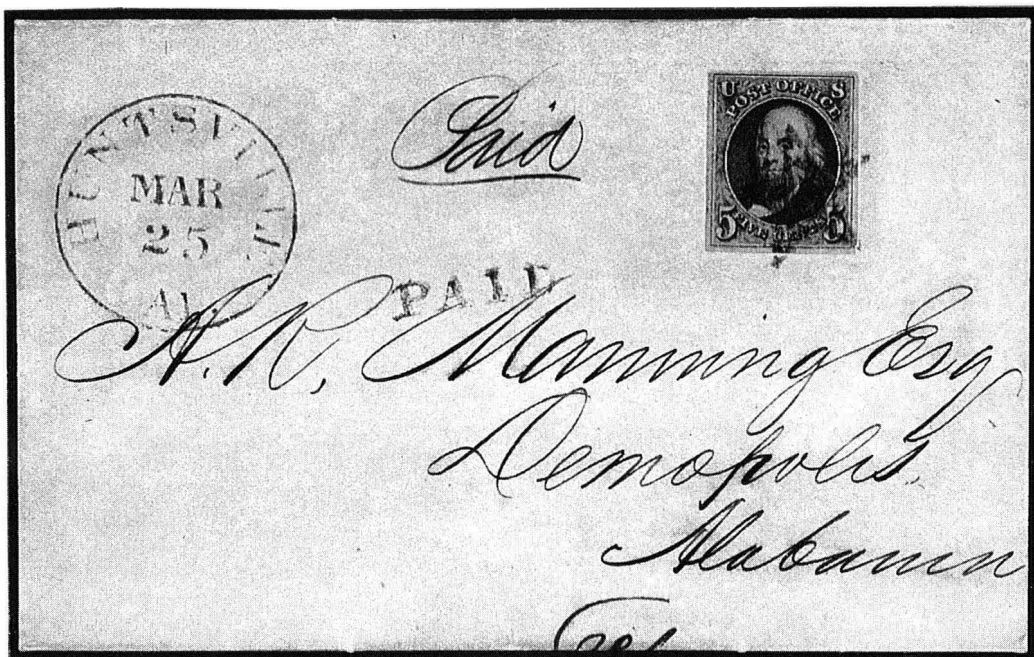 HUNTSVILLE
MAR
25
Al
Paid
PAID
U S
POST OFFICE
5 FIVE CENTS 5
A. R. Manning Esq
Demopolis.
Alabama